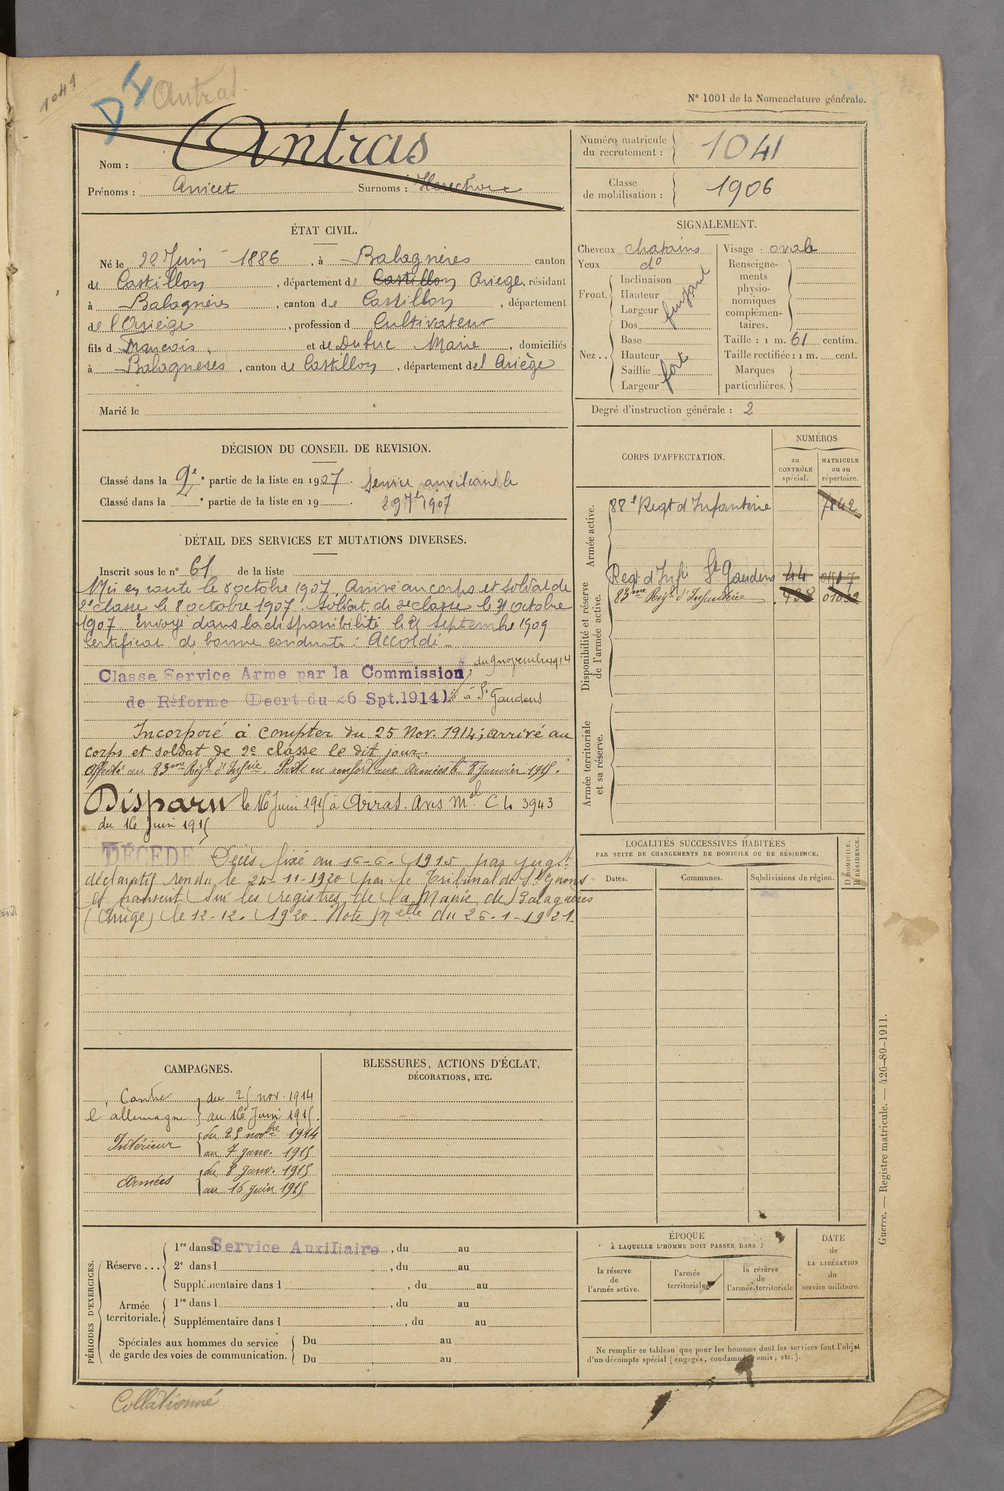 1041
DX Antras
N° 1001 de la Nomenclature générale.
Nom : Antras
Prénoms : Anicet Surnoms :
Numéro matricule du recrutement : 1041
Classe de mobilisation : 1906
ÉTAT CIVIL.
Né le 22 Juin 1886, à Balagnères canton
de Castillon, département de Castillon Ariège, résidant
à Balagnères, canton de Castillon, département
de l'Ariège, profession d Cultivateur
fils d François et de Dubuc Marie, domiciliés
à Balagnères, canton de Castillon, département de l'Ariège
Marié le
SIGNALEMENT.
Cheveux chatains
Yeux d°
Front Inclinaison
Hauteur
Largeur
Dos
Nez Base
Hauteur
Saillie
Largeur
fort
Visage : ovale
Renseignements physionomiques complémentaires.
Taille : 1 m. 61 centim.
Taille rectifiée : 1 m. cent.
Marques particulières.
Degré d'instruction générale : 2
DÉCISION DU CONSEIL DE REVISION.
Classé dans la 2e partie de la liste en 1907. Service auxiliaire
Classé dans la e partie de la liste en 19
1907
CORPS D'AFFECTATION.
NUMÉROS
au CONTRÔLE spécial.
MATRICULE ou au répertoire.
Armée active.
88e Regt d'Infanterie 7842
Disponibilité et réserve de l'armée active.
Regt d'Infie St Gaudens 44
83me Régt d'Infanterie
Armée territoriale et sa réserve.
DÉTAIL DES SERVICES ET MUTATIONS DIVERSES.
Inscrit sous le n° 61 de la liste
Mis en route le 8 octobre 1907. Arrivé au corps et soldat de
2e classe le 8 octobre 1907. Soldat de 2e classe le 31 octobre
1907. Envoyé dans la disponibilité le 25 septembre 1909
Certificat de bonne conduite : Accordé
Classe Service Arme par la Commission du 9 novembre 1914
de Réforme (Decrt du 26 Spt. 1914) à St Gaudens
Incorporé à compter du 25 Nov. 1914 ; arrivé au
corps et soldat de 2e classe le dit jour.
Affecté au 83me Régt d'Infrie. Parti en renfort aux armées le 8 janvier 1915.
Disparu le 16 Juin 1915 à Arras. Avis Mel C h 3943
du 16 Juin 1915
DÉCÉDÉ Décès fixé au 16-6-1915 par jugt
déclaratif rendu le 24-11-1920 par le Tribunal de St Girons
et transcrit sur les registres de la Mairie de Balagnères
(Ariège) le 12-12-1920. Note nelle du 26-1-1921.
LOCALITÉS SUCCESSIVES HABITÉES
PAR SUITE DE CHANGEMENTS DE DOMICILE OU DE RÉSIDENCE.
Dates. Communes. Subdivisions de région. D. DOMICILE. R. RÉSIDENCE.
CAMPAGNES.
Contre l'allemagne du 25 nov. 1914
au 16 Juin 1915.
Intérieur du 25 novbre 1914
au 7 janv. 1915
Armées du 8 janv. 1915
au 16 juin 1915
BLESSURES, ACTIONS D'ÉCLAT,
DÉCORATIONS, ETC.
PÉRIODES D'EXERCICES.
Réserve ... 1re dans l Service Auxiliaire, du au
2e dans l , du au
Supplémentaire dans l , du au
Armée territoriale. 1re dans l , du au
Supplémentaire dans l , du au
Spéciales aux hommes du service de garde des voies de communication. Du au
Du au
ÉPOQUE
À LAQUELLE L'HOMME DOIT PASSER DANS :
la réserve de l'armée active.
l'armée territoriale.
la réserve de l'armée territoriale
DATE de LA LIBÉRATION du service militaire.
Ne remplir ce tableau que pour les hommes dont les services font l'objet
d'un décompte spécial (engagés, condamnés, omis, etc.).
Guerre. — Registre matricule. — 426-89-1911.
Collationné